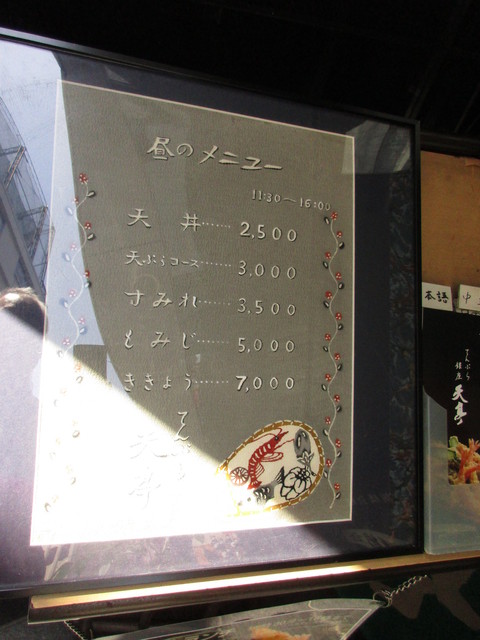 昼のメニュー
11:30〜16:00
天丼……2,500
天ぷらコース……3,000
すみれ……3,500
もみじ……5,000
ききょう……7,000
てんぷら
天亭
本語
中
てんぷら
銀座
天亭